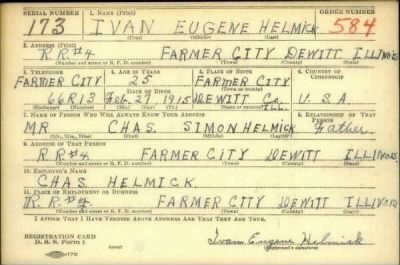 SERIAL NUMBER 1. NAME (Print) ORDER NUMBER
173 IVAN EUGENE HELMICK 584
(First) (Middle) (Last)
2. ADDRESS (Print)
R.R.#4 FARMER CITY DEWITT ILLINOIS
(Number and street or R. F. D. number) (Town) (County) (State)
3. TELEPHONE 4. AGE IN YEARS 5. PLACE OF BIRTH 6. COUNTRY OF CITIZENSHIP
FARMER CITY 25 FARMER CITY
DATE OF BIRTH (Town or county)
66R13 Feb. 27 1915 DEWITT Co. ILL. U.S.A.
(Exchange) (Number) (Mo.) (Day) (Yr.) (State or country)
7. NAME OF PERSON WHO WILL ALWAYS KNOW YOUR ADDRESS 8. RELATIONSHIP OF THAT PERSON
MR CHAS. SIMON HELMICK Father
(Mr., Mrs., Miss) (First) (Middle) (Last)
9. ADDRESS OF THAT PERSON
RR#4 FARMER CITY DEWITT ILLINOIS
(Number and street or R. F. D. number) (Town) (County) (State)
10. EMPLOYER'S NAME
CHAS HELMICK
11. PLACE OF EMPLOYMENT OR BUSINESS
R.R.#4 FARMER CITY DEWITT ILLINOIS
(Number and street or R. F. D. number) (Town) (County) (State)
I AFFIRM THAT I HAVE VERIFIED ABOVE ANSWERS AND THAT THEY ARE TRUE.
REGISTRATION CARD
D. S. S. Form 1 Ivan Eugene Helmick
(Registrant's signature)